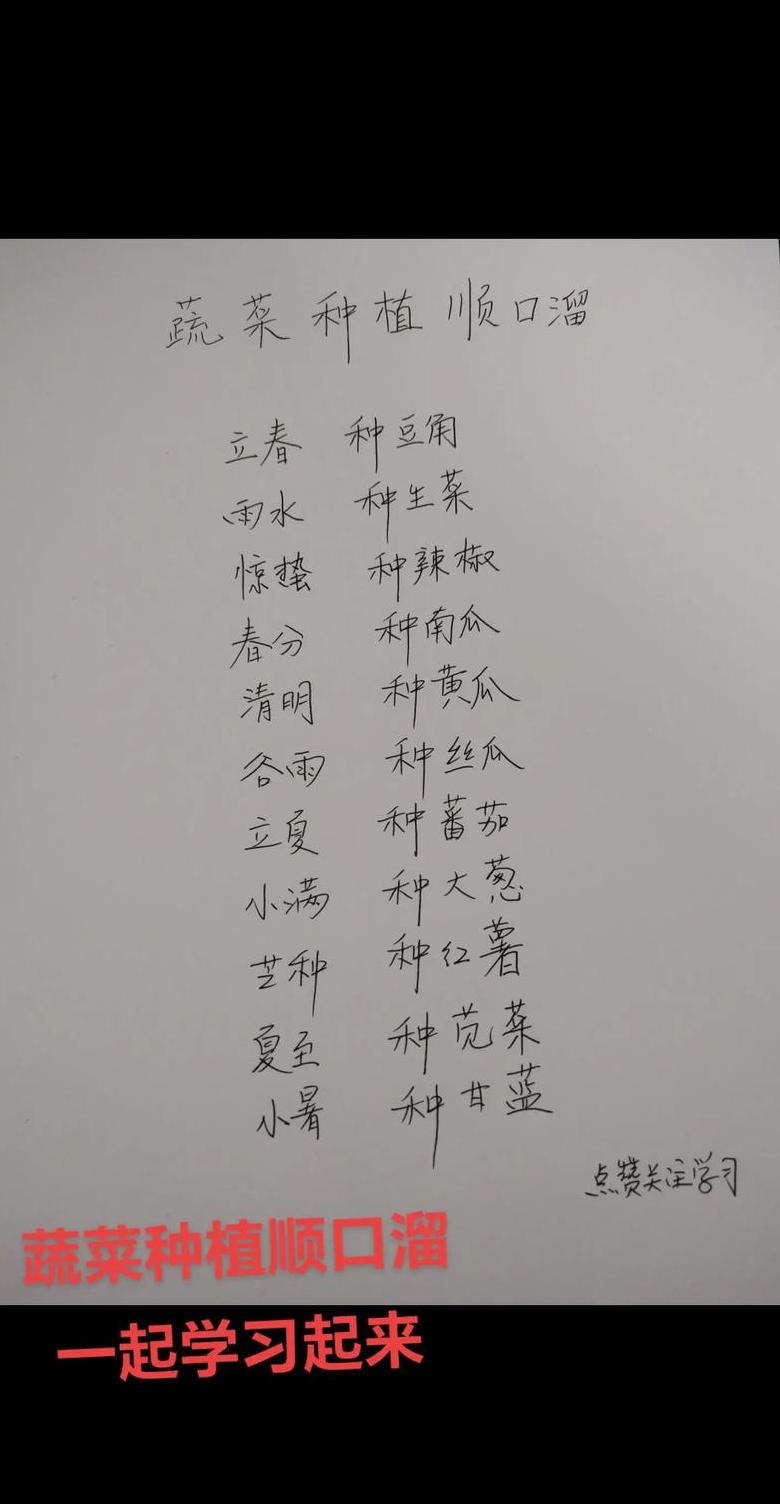 蔬菜种植顺口溜
立春 种豆角
雨水 种生菜
惊蛰 种辣椒
春分 种南瓜
清明 种黄瓜
谷雨 种丝瓜
立夏 种蕃茄
小满 种大葱
芒种 种红薯
夏至 种苋菜
小暑 种甘蓝
点赞关注学习
蔬菜种植顺口溜
一起学习起来